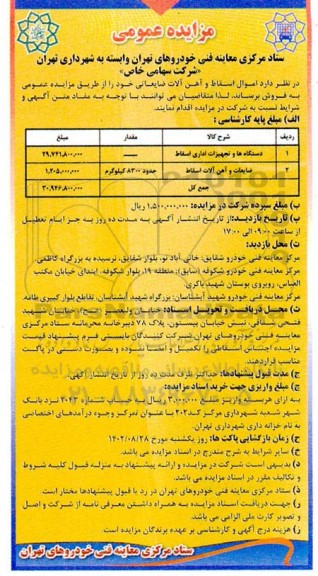 مزایده عمومی
ستاد مرکزی معاینه فنی خودروهای تهران وابسته به شهرداری تهران
«شرکت سهامی خاص»
در نظر دارد اموال اسقاط و آهن آلات ضایعاتی خود را از طریق مزایده عمومی
به فروش برساند، لذا متقاضیان می توانند با توجه به مفاد متن آگهی و
شرایط نسبت به شرکت در مزایده اقدام نمایند.
الف) مبلغ پایه کارشناسی :
ردیف شرح کالا مقدار مبلغ
۱ دستگاه ها و تجهیزات اداری اسقاط —— ۲۹,۷۴۱,۸۰۰,۰۰۰
۲ ضایعات و آهن آلات اسقاط حدود ۸۳۰۰ کیلوگرم ۱,۲۰۵,۰۰۰,۰۰۰
جمع کل ۳۰,۹۴۶,۸۰۰,۰۰۰
ب) مبلغ سپرده شرکت در مزایده: ۱,۵۰۰,۰۰۰,۰۰۰ ریال
پ) تاریخ بازدید: از تاریخ انتشار آگهی به مدت ده روز به جز ایام تعطیل
از ساعت ۰۹:۰۰ الی ۱۷:۰۰
ت) محل بازدید:
مرکز معاینه فنی خودرو شقایق: خانی آباد نو، بلوار شقایق، نرسیده به بزرگراه کاظمی.
مرکز معاینه فنی خودرو شکوفه (نیایق): منطقه ۱۹، بلوار شکوفه، ابتدای خیابان مکتب
العباس، روبروی بوستان شهید باکری.
مرکز معاینه فنی خودرو شهید آبشناسان: بزرگراه شهید آبشناسان، تقاطع بلوار کبیری طامه.
ث) محل دریافت و تحویل اسناد: خیابان شهید
فتحی شقاقی، نبش خیابان بیستون، پلاک ۷۸ دبیرخانه محرمانه ستاد مرکزی
معاینه فنی خودروهای تهران. شرکت کنندگان بایستی فرم پیشنهاد قیمت
مزایده اجناس اسقاطی را تکمیل و امضا نموده و بصورت دستی در پاکت
مناسب قرار دهند.
ج) مدت قبول پیشنهادها: حداکثر ظرف مدت ده روز از تاریخ انتشار آگهی.
چ) مبلغ واریزی جهت خرید اسناد مزایده:
به ازای هر سند واریز مبلغ ۳,۰۰۰,۰۰۰ ریال به حساب شماره ۲۰۴۳ نزد بانک
شهر شعبه شهرداری مرکز کد ۲۰۲ با عنوان تمرکز وجوه درآمدهای اختصاصی
به نام خزانه داری شهرداری تهران.
ح) زمان بازگشایی پاکت ها: روز یکشنبه مورخ ۱۴۰۲/۰۸/۲۸
خ) سایر شرایط به شرح مندرج در اسناد مزایده می باشد.
د) بدیهی است شرکت در مزایده و ارائه پیشنهاد به منزله قبول کلیه شروط و
تکالیف مقرر در اسناد مزایده می باشد.
ذ) ستاد مرکزی معاینه فنی خودروهای تهران در رد یا قبول پیشنهادها مختار است
ر) جهت دریافت اسناد مزایده به همراه داشتن معرفی نامه از شرکت و اصل و
تصویر کارت ملی الزامی می باشد.
ز) هزینه درج آگهی و کارشناسی بر عهده برندگان مزایده است.
ستاد مرکزی معاینه فنی خودروهای تهران